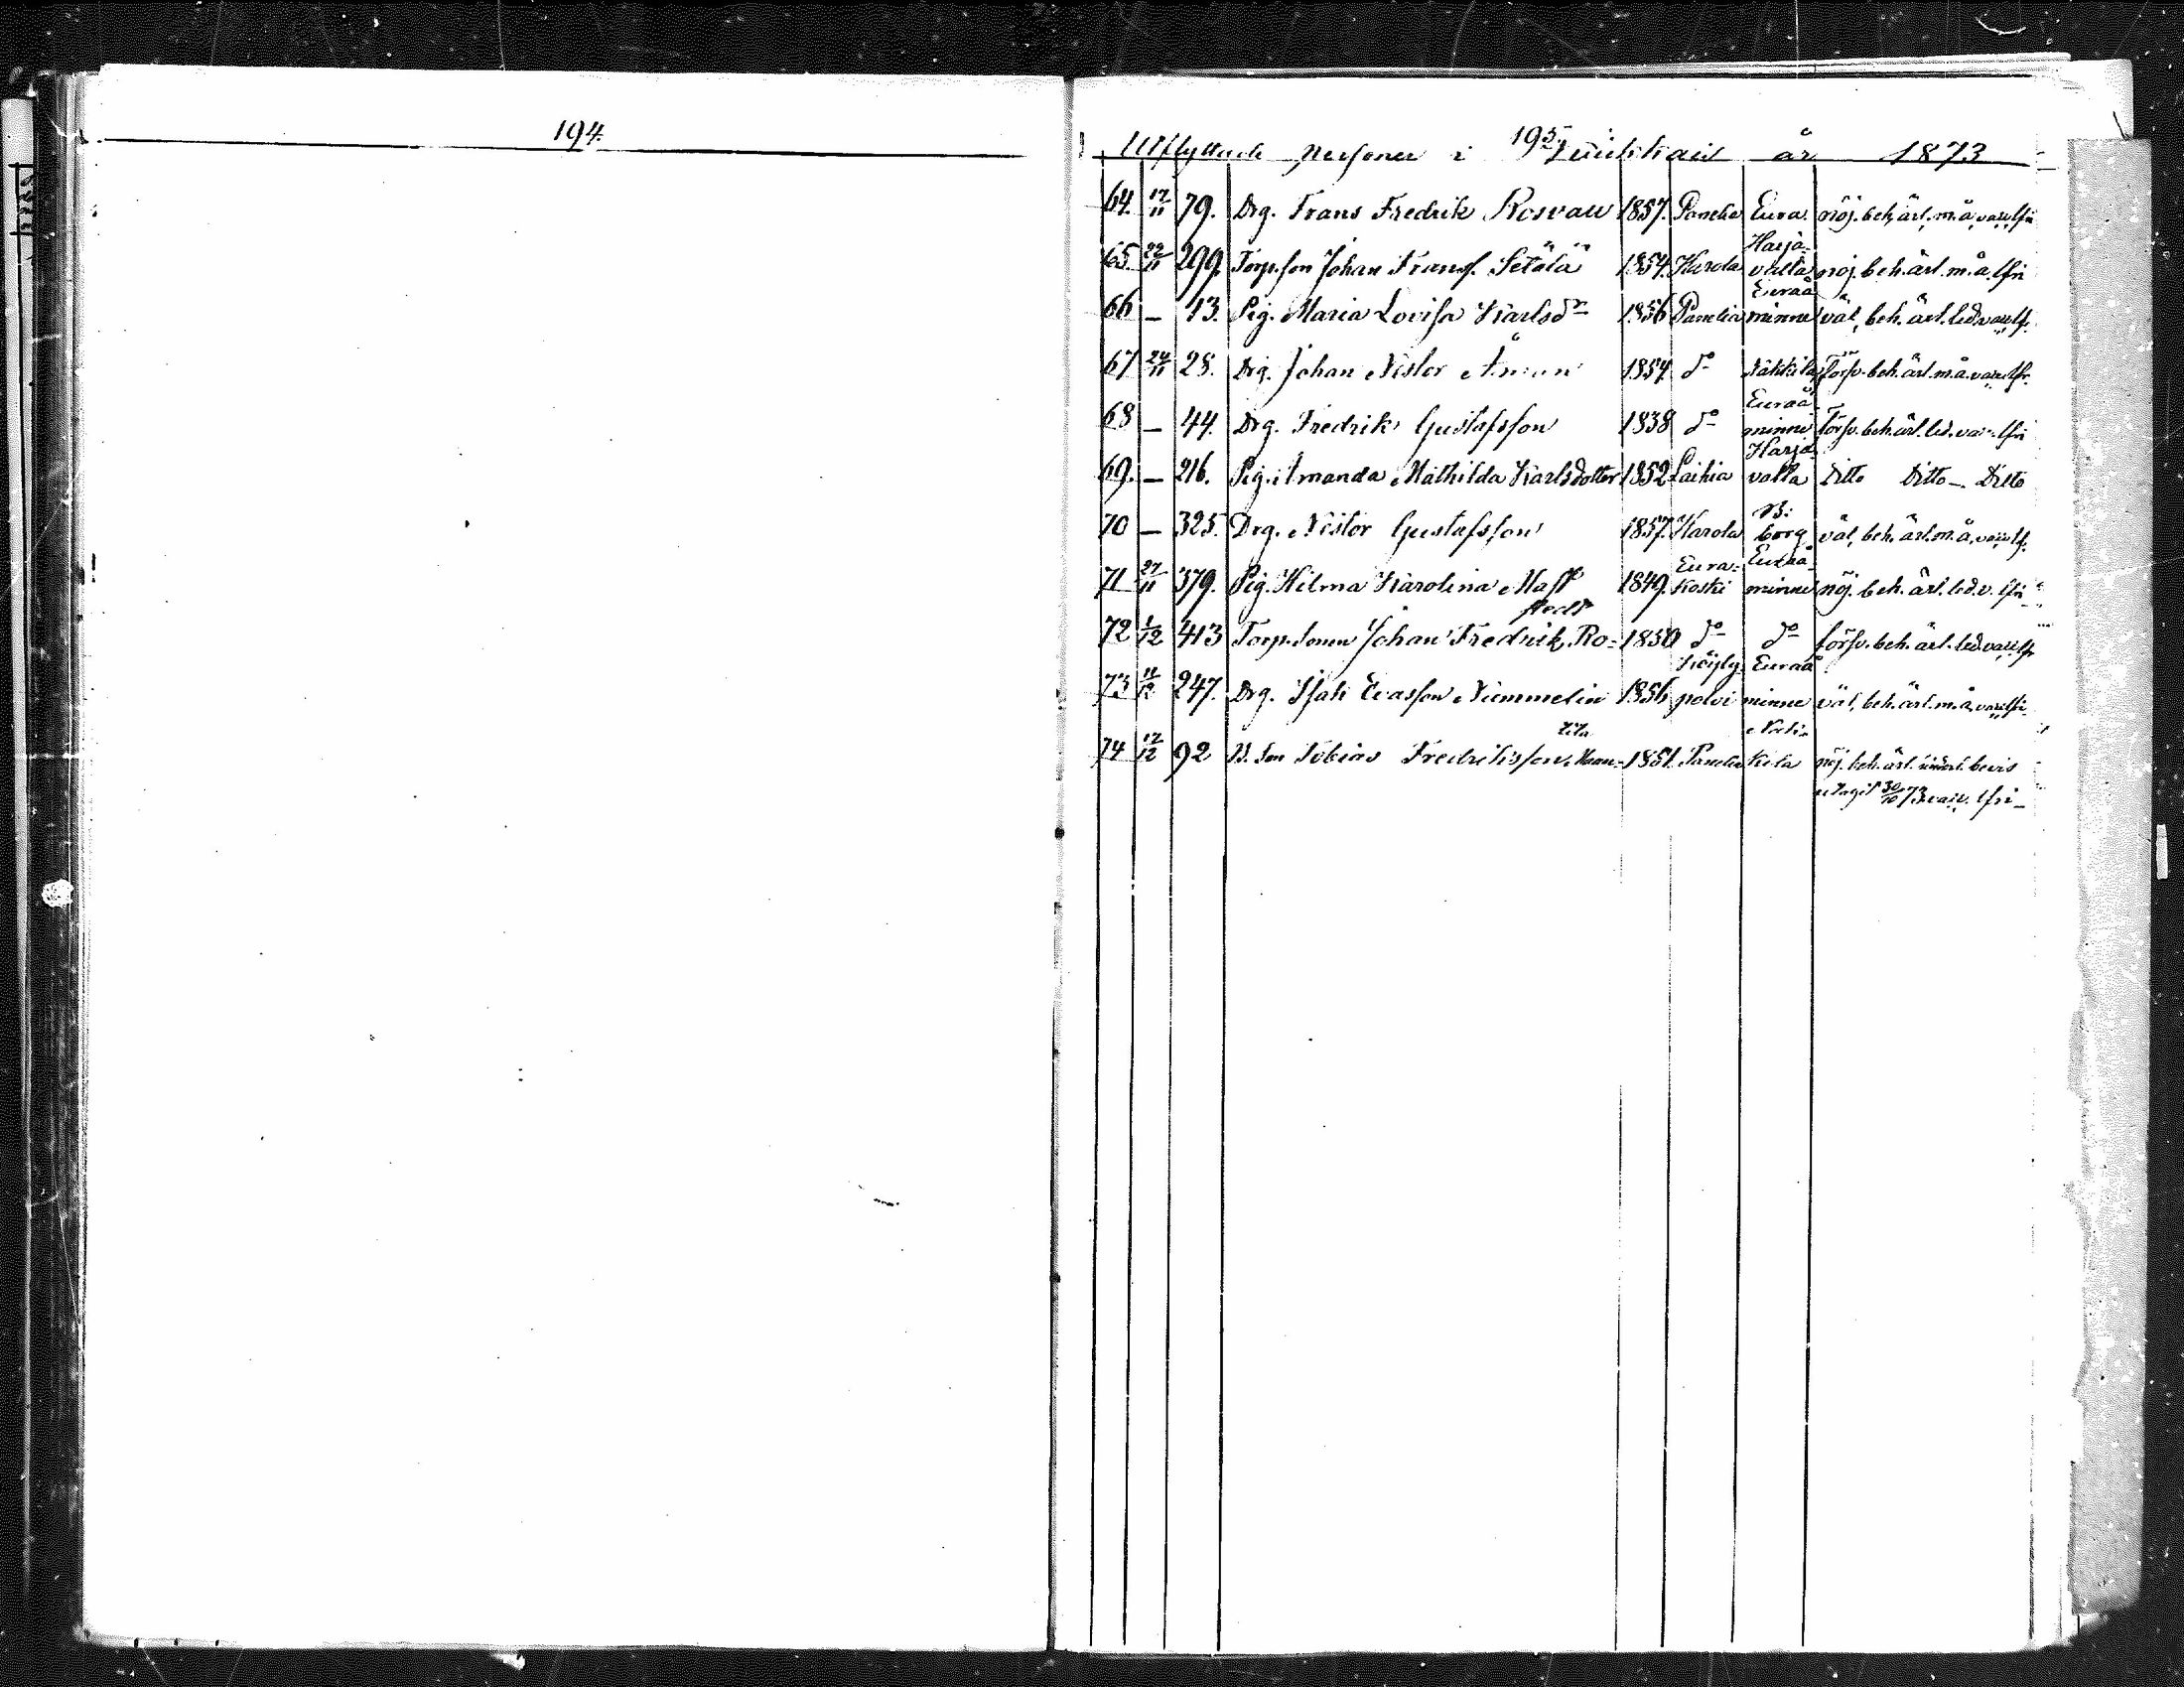 194.
195.
Utflyttade personer i Kiukkais år 1873
64. 17/11 79. Drg. Frans Fredrik Rosvall 1857. Panelia Eura. nöj. beh. ärl. m. å. vacc. lfri
65. 22/11 299. Torp. son Johan Franss. Setälä 1854. Harola Harjavalta nöj. beh. ärl. m. å. lfri
66 — 13. Pig. Maria Lovisa Karlsdr 1856 Panelia Euraåminne väl. beh. ärl. led. vacc. lf.
67 24/11 28. Drg. Johan Nestor 1854 do Nakkila försv. beh. ärl. m. å. vacc. lfr.
68 — 44. Drg. Fredrik Gustafsson 1838 do Euraåminne försv. beh. ärl. led. vacc. lfri
69. — 216. Pig. Amanda Mathilda Karlsdotter 1852 Laihia Harjavalta Ditto Ditto — Ditto
70 — 325. Drg. Nestor Gustafsson 1857. Harola B:borg väl. beh. ärl. m. å. vacc. lf.
71 27/11 379. Pig. Hilma Karolina 1849. Eurakoski Euraåminne nöj. beh. ärl. led. v. lfri
72 1/12 413 Torp. sonen Johan Fredrik Rostedt 1850 do do försv. beh. ärl. led. vacc. lfr
73 11/12 247. Drg. Isak Evasson Nummelin 1856 Köylypolvi Euraåminne väl. beh. ärl. m. å. vacc. lfri
74 17/12 92 B. son Tobias Fredriksson 1851. Panelia Nakkila nöj. beh. ärl. bevis
uttagit 30/10 73. vacc. lfri —